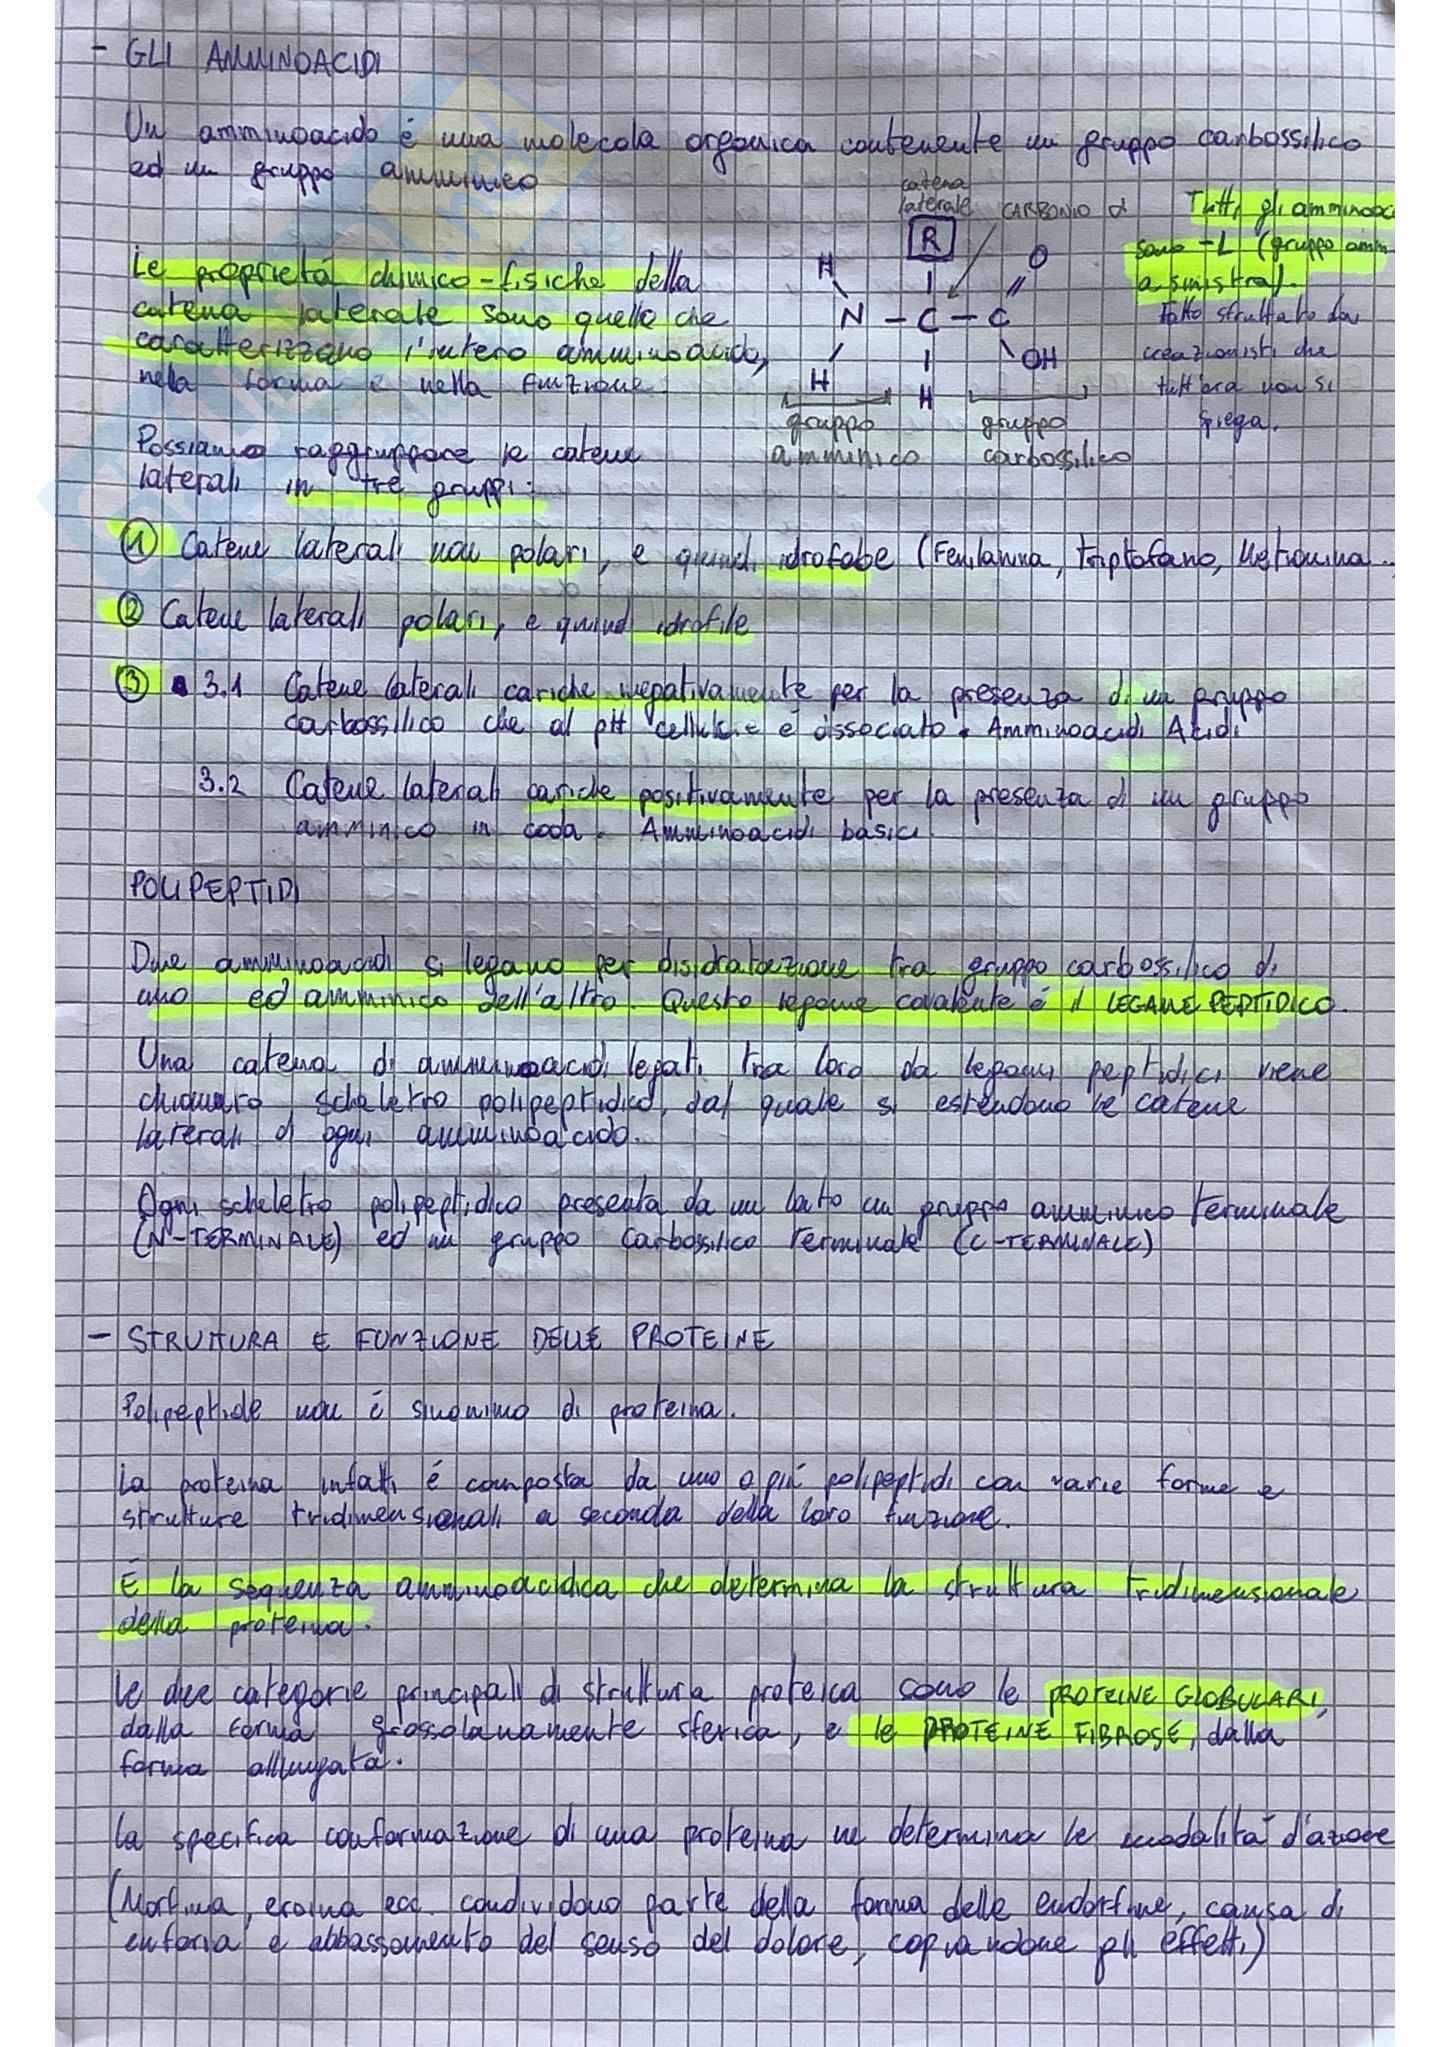 - GLI AMMINOACIDI
Un amminoacido è una molecola organica contenente un gruppo carbossilico
ed un gruppo amminico
catena
laterale
CARBONIO α
R
H
O
N - C - C
H
H
OH
gruppo
amminico
gruppo
carbossilico
Tutti gli amminoac
sono -L (gruppo amm
a sinistra).
Fatto sfruttato dai
creazionisti che
tutt'ora non si
spiega.
Le proprietà chimico-fisiche della
catena laterale sono quelle che
caratterizzano l'intero amminoacido,
nella forma e nella funzione.
Possiamo raggruppare le catene
laterali in tre gruppi:
1 Catene laterali non polari, e quindi idrofobe (Fenilanina, triptofano, Metionina...
2 Catene laterali polari, e quindi idrofile
3 3.1 Catene laterali cariche negativamente per la presenza di un gruppo
carbossilico che al pH cellulare è dissociato. Amminoacidi Acidi
3.2 Catene laterali cariche positivamente per la presenza di un gruppo
amminico in coda. Amminoacidi basici
POLIPEPTIDI
Due amminoacidi si legano per disidratazione tra gruppo carbossilico di
uno ed amminico dell'altro. Questo legame covalente è il LEGAME PEPTIDICO.
Una catena di amminoacidi legati tra loro da legami peptidici viene
chiamato scheletro polipeptidico, dal quale si estendono le catene
laterali di ogni amminoacido.
Ogni scheletro polipeptidico presenta da un lato un gruppo amminico terminale
(N-TERMINALE) ed un gruppo carbossilico terminale (C-TERMINALE)
- STRUTTURA E FUNZIONE DELLE PROTEINE
Polipeptide non è sinonimo di proteina.
La proteina infatti è composta da uno o più polipeptidi con varie forme e
strutture tridimensionali a seconda della loro funzione.
È la sequenza amminoacidica che determina la struttura tridimensionale
della proteina.
Le due categorie principali di struttura proteica sono le PROTEINE GLOBULARI,
dalla forma grossolanamente sferica, e le PROTEINE FIBROSE, dalla
forma allungata.
La specifica conformazione di una proteina ne determina le modalità d'azione
(Morfina, eroina ecc. condividono parte della forma delle endorfine, causa di
euforia e abbassamento del senso del dolore, copiandone gli effetti)